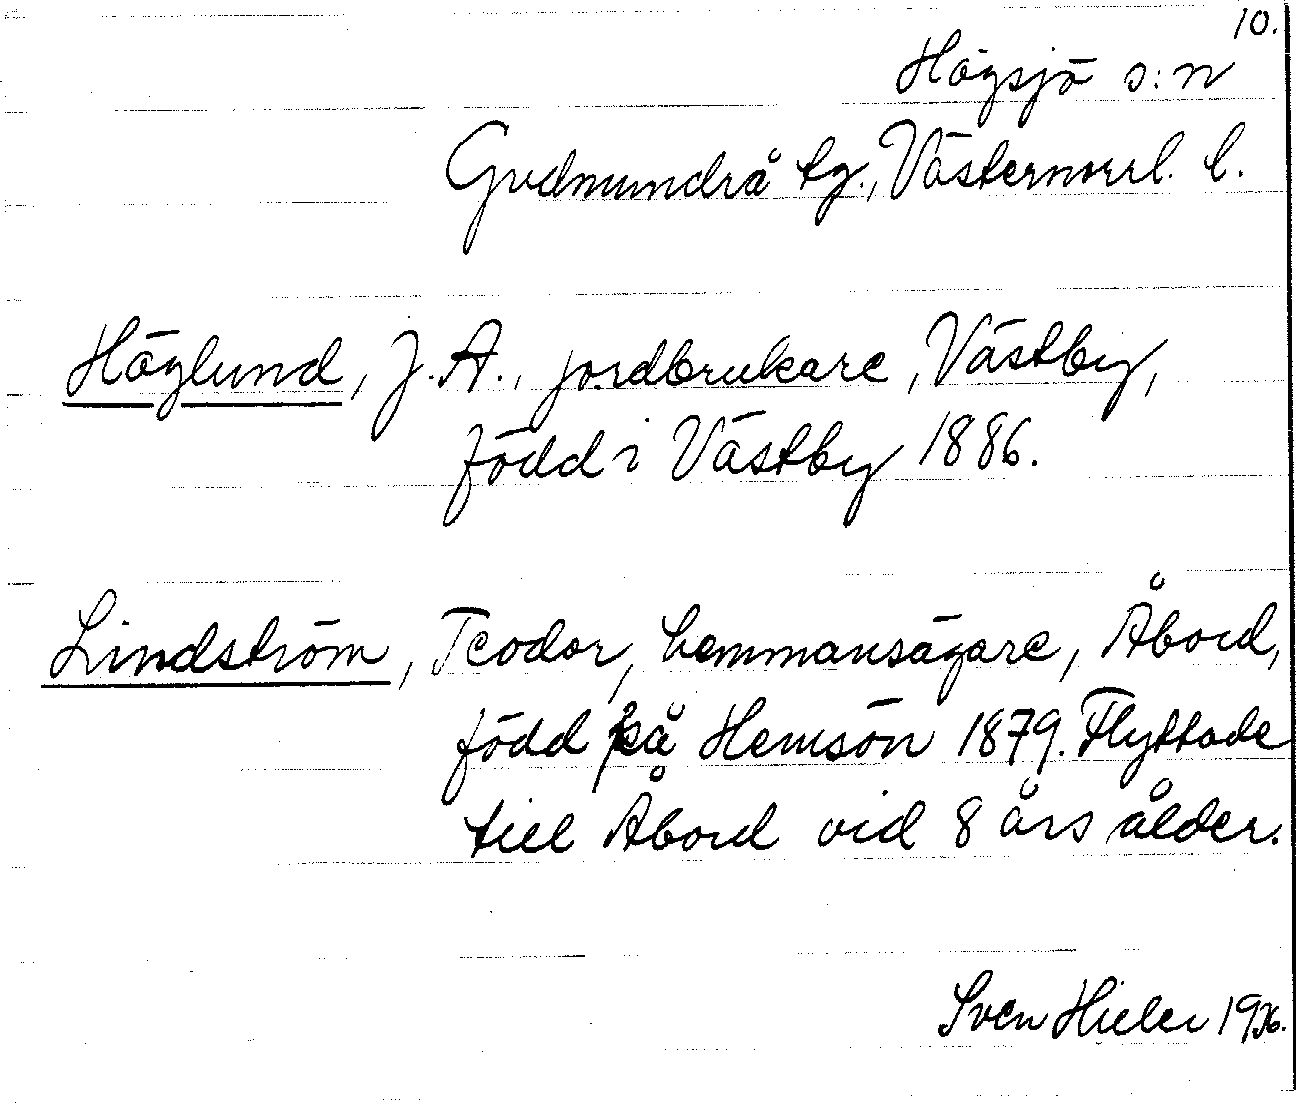 10.
Högsjö s:n
Gudmundrå tg., Västernorrl. l.
Höglund, J. A., jordbrukare, Västby,
född i Västby 1886.
Lindström, Teodor, hemmansägare, Åbord,
född på Hemsön 1879. Flyttade
till Åbord vid 8 års ålder.
Sven Hieler 1936.